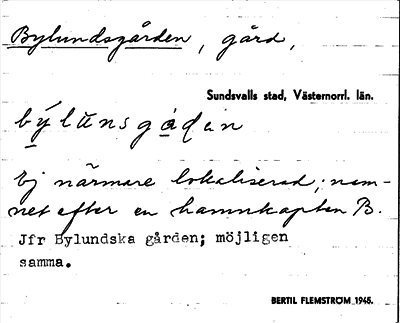 Bylundsgården, gård,
Sundsvalls stad, Västernorrl. län.
bý̱lŭnsga̱dan
Ej närmare lokaliserad; nam-
net efter en hamnkapten B.
Jfr Bylundska gården; möjligen
samma.
BERTIL FLEMSTRÖM 1945.